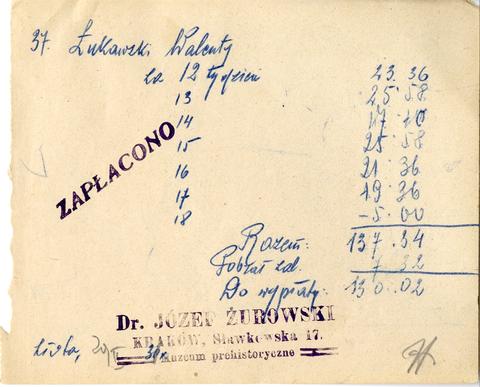 37. Żukowski Walenty
za 12 tydzień 23.36
13 25.58
14 17.10
15 25.58
16 21.36
17 19.36
18 5.00
ZAPŁACONO
Razem: 137.34
Pobrał zal. 7.32
Do wypłaty: 130.02
Dr. JÓZEF ŻUROWSKI
KRAKÓW, Sławkowska 17.
Muzeum prehistoryczne